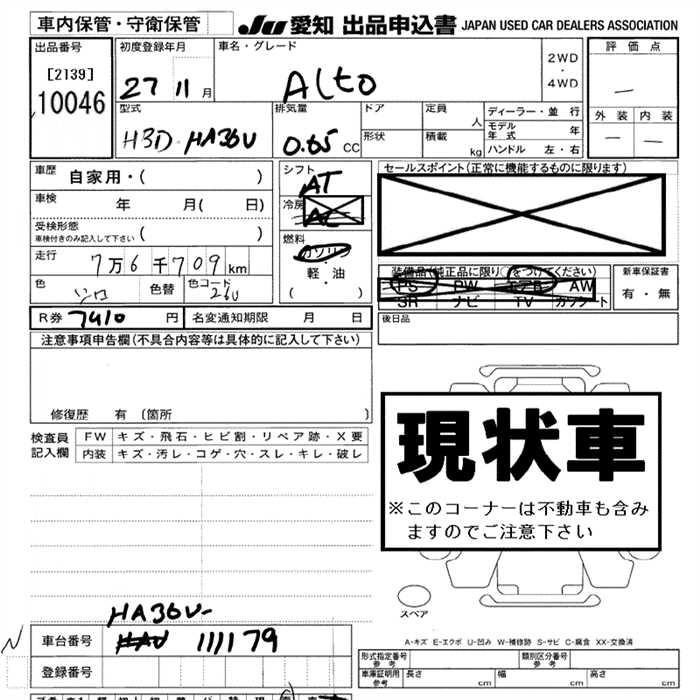 車内保管・守衛保管
JU 愛知 出品申込書 JAPAN USED CAR DEALERS ASSOCIATION
出品番号
[2139]
10046
初度登録年月
27 11 月
車名・グレード
Alto
2WD
・
4WD
評価点
—
外装 内装
— —
型式
HBD-HA36V
排気量
0.65 CC
ドア
形状
定員
人
積載
kg
ディーラー・並行
モデル年式 年
ハンドル 左・右
車歴 自家用・( )
車検 年 月( 日)
受検形態
車検付きのみ記入して下さい ( )
走行 7万6千709km
色
シロ
色替
色コード
26U
シフト
AT
冷房
AC
燃料
ガソリン
・
軽・油
( )
セールスポイント(正常に機能するものに限ります)
装備品(純正品に限り○をつけてください)
PS PW エアB AW
SR ナビ TV カセット
新車保証書
有・無
R券 7410 円
名変通知期限 月 日
後日品
注意事項申告欄(不具合内容等は具体的に記入して下さい)
修復歴 有 [箇所 ]
検査員
記入欄
FW キズ・飛石・ヒビ割・リペア跡・X要
内装 キズ・汚レ・コゲ・穴・スレ・キレ・破レ
現状車
※このコーナーは不動車も含み
ますのでご注意下さい
スペア
A-キズ E-エクボ U-凹み W-補修跡 S-サビ C-腐食 XX-交換済
HA36V-
車台番号 111179
登録番号
形式指定番号
参考
類別区分番号
参考
車庫証明用
参考
長さ cm
幅 cm
高さ cm